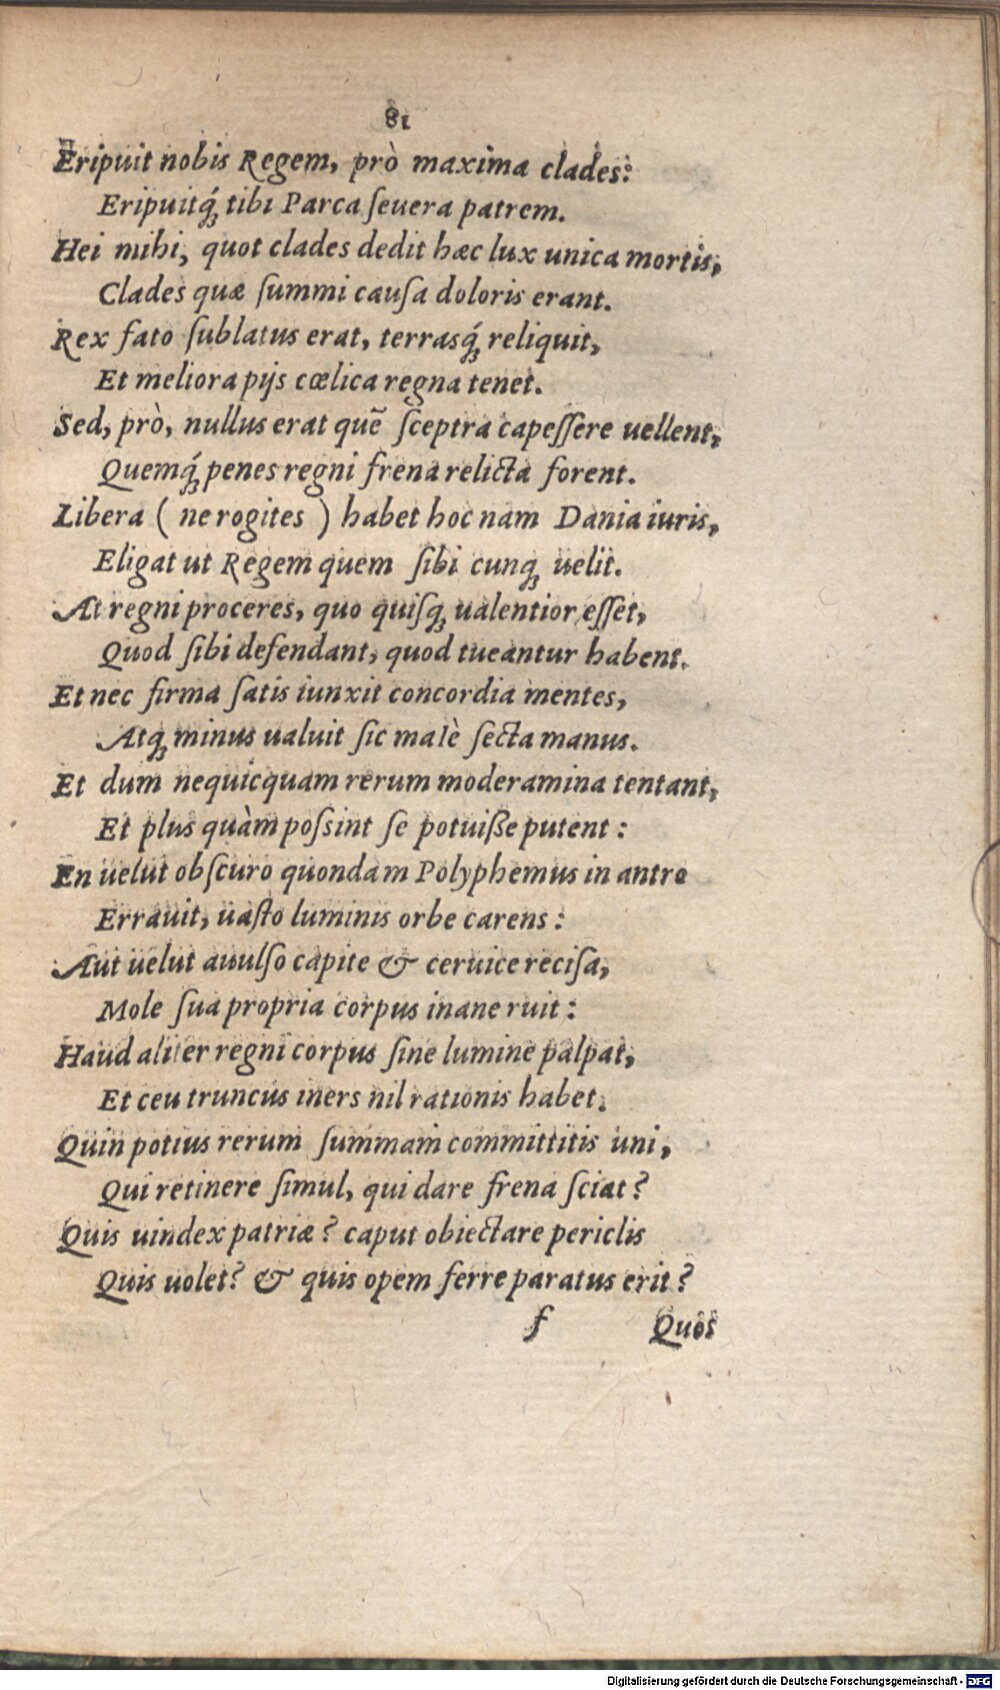 81
Eripuit nobis Regem, prò maxima clades:
Eripuitq́; tibi Parca ſeuera patrem.
Hei mihi, quot clades dedit hæc lux unica mortis,
Clades quæ ſummi cauſa doloris erant.
Rex fato ſublatus erat, terrasq́; reliquit,
Et meliora pijs cœlica regna tenet.
Sed, prò, nullus erat quē ſceptra capeſſere uellent,
Quemq́; penes regni frena relicta forent.
Libera ( ne rogites ) habet hoc nam Dania iuris,
Eligat ut Regem quem ſibi cunq; uelit.
At regni proceres, quo quiſq; ualentior eſſet,
Quod ſibi defendant, quod tueantur habent.
Et nec firma ſatis iunxit concordia mentes,
Atq; minus ualuit ſic malè ſecta manus.
Et dum nequicquam rerum moderamina tentant,
Et plus quàm poſsint ſe potuiße putent :
En uelut obſcuro quondam Polyphemus in antro
Errauit, uaſto luminis orbe carens :
Aut uelut auulſo capite & ceruice reciſa,
Mole ſua propria corpus inane ruit :
Haud aliter regni corpus ſine lumine palpat,
Et ceu truncus iners nil rationis habet.
Quin potius rerum ſummam committitis uni,
Qui retinere ſimul, qui dare frena ſciat?
Quis uindex patriæ? caput obiectare periclis
Quis uolet? & quis opem ferre paratus erit?
f Quos
Digitalisierung gefördert durch die Deutsche Forschungsgemeinschaft - DFG